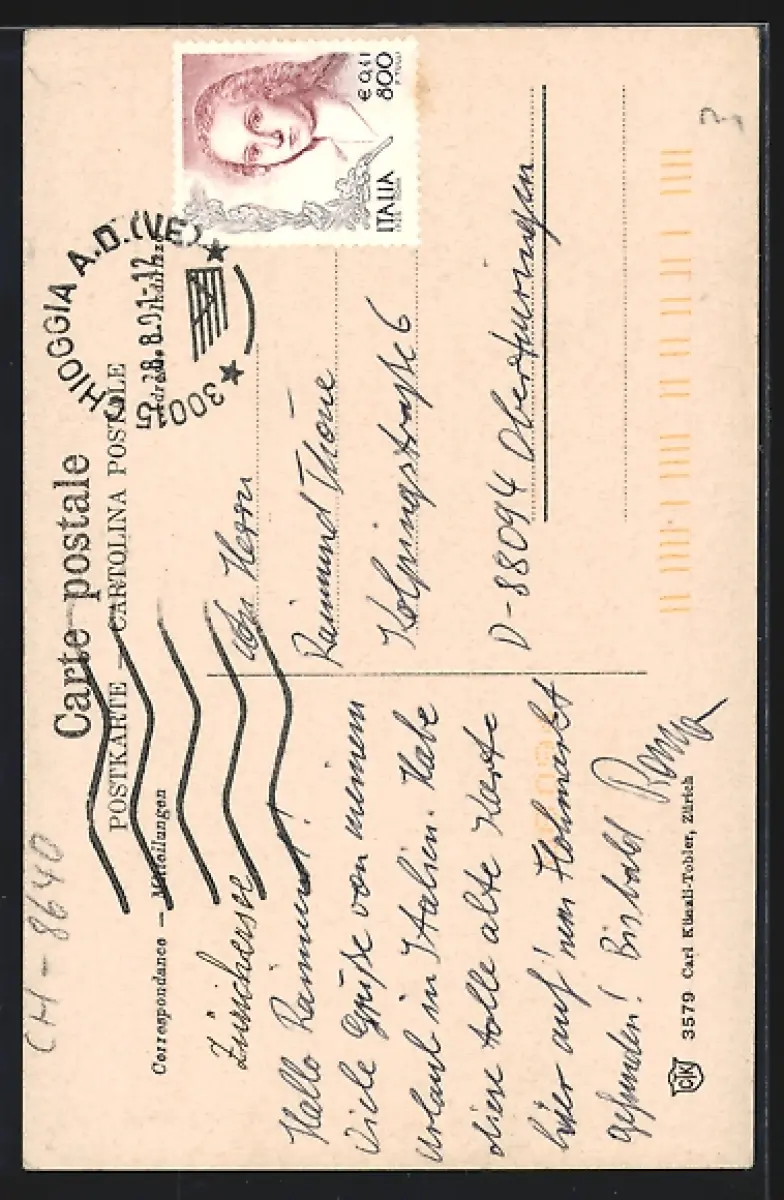 CH-8640
Carte postale
POSTKARTE — CARTOLINA POSTALE
Correspondance — Mitteilungen
CHIOGGIA A.D. (VE)
28.8.01-12
3001
ITALIA
€ 0,41
800
3
Zürichersee
Hallo Raimund!
Viele Grüße von meinem
Urlaub in Italien. Habe
diese tolle alte Karte
hier auf 'nem Flohmarkt
gefunden! Bis bald
An Herrn
Raimund Thöne
Kolpingstraße 6
D-88094 Oberteuringen
CK
3579 Carl Künzli-Tobler, Zürich